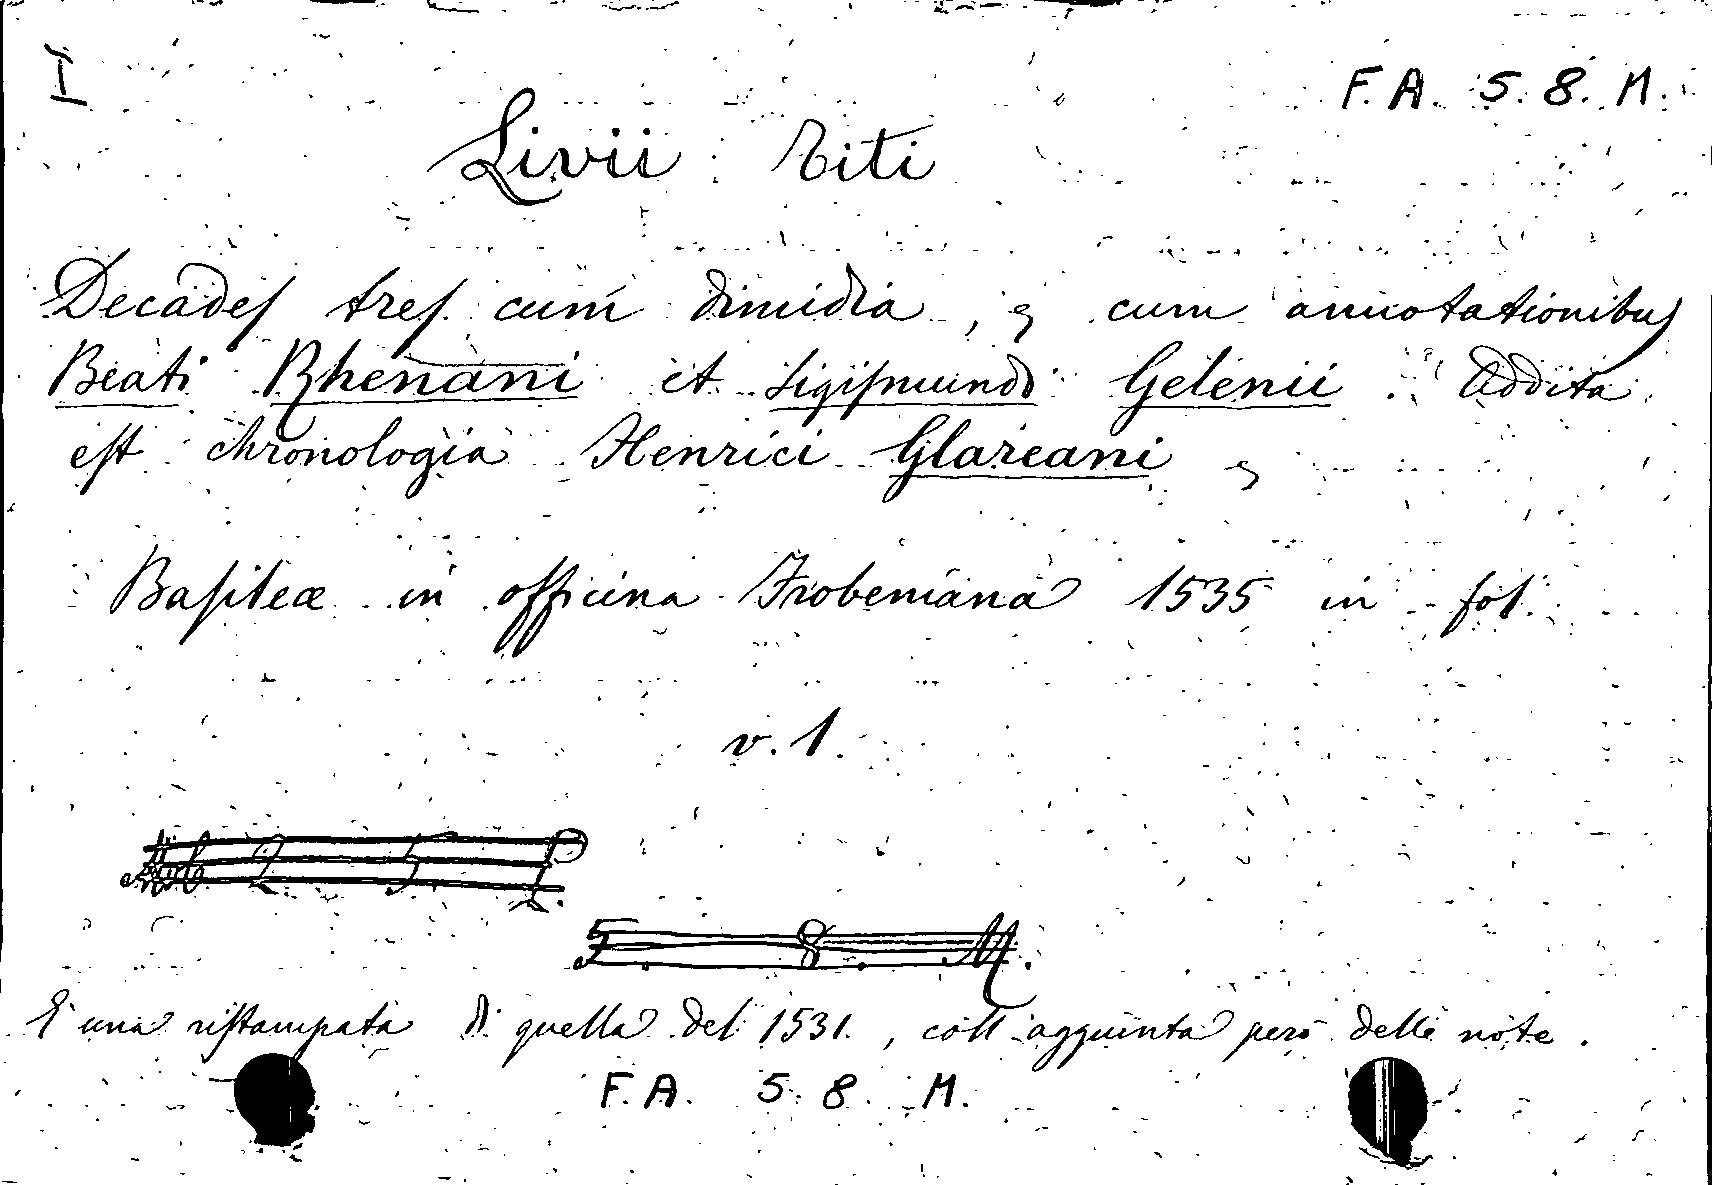 I
F. A. 5. 8. M.
Livii Titi
Decades tres cum dimidia, & cum annotationibus
Beati Rhenani et Sigismundi Gelenii. Addita
est chronologia Henrici Glareani &
Basileæ in officina Frobeniana 1535 in fol.
v. 1.
2 5
5. 8. M.
E' una ristampata di quella del 1531, coll'aggiunta però delle note.
F. A. 5. 8. M.